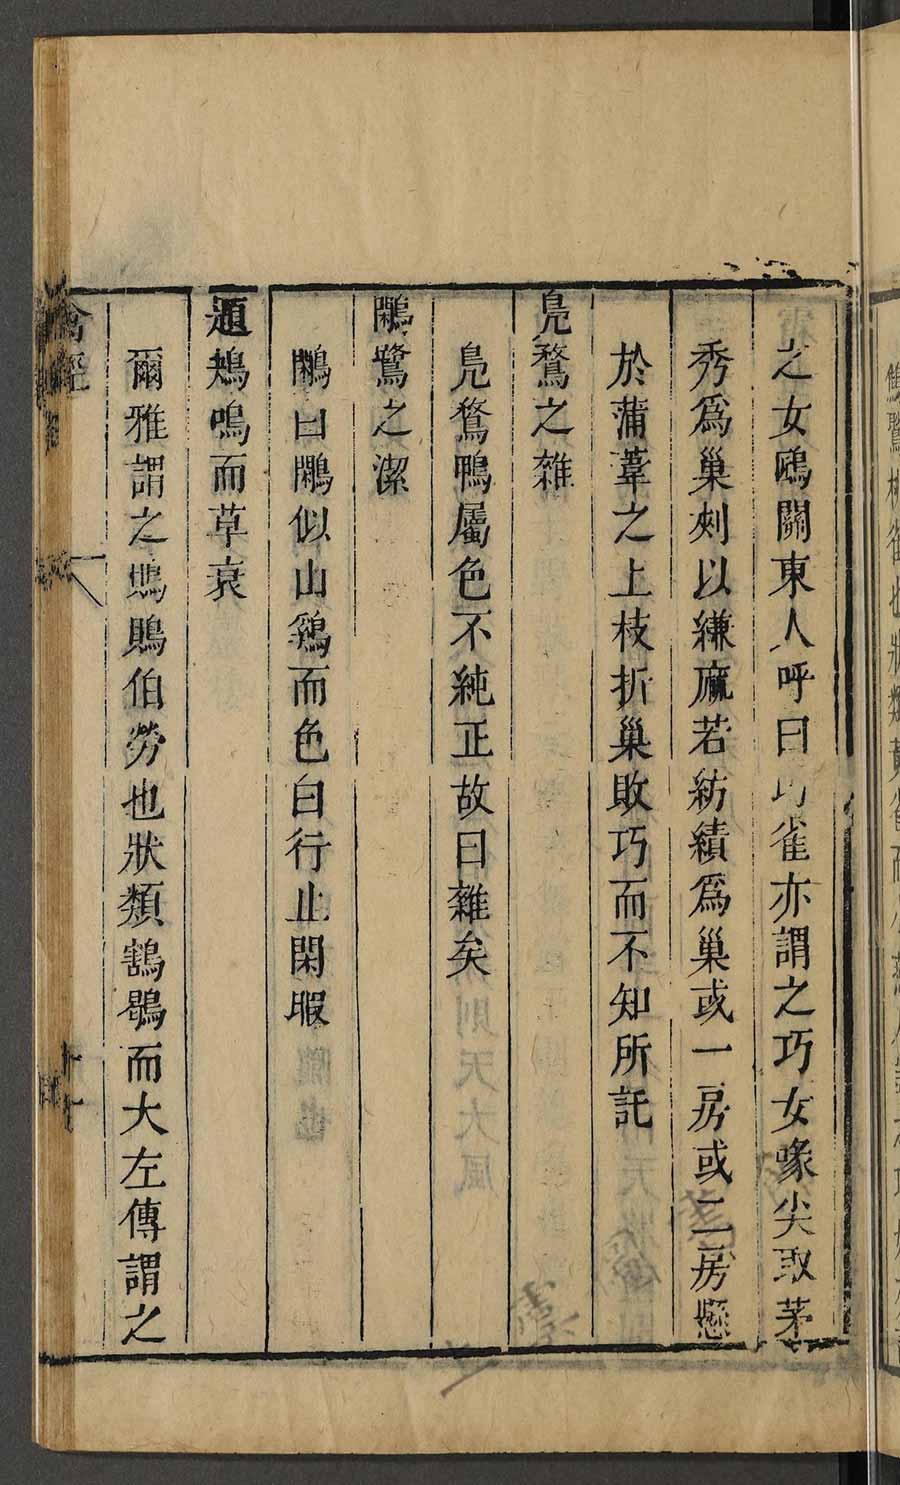 之女鴎關東人呼曰巧雀亦謂之巧女喙尖取茅
秀爲巢刺以縑麻若紡績爲巢或一房或二房懸
於蒲葦之上枝折巢敗巧而不知所託
鳧鶩之雜
鳧鶩鴨屬色不純正故曰雜矣
鷳鷺之潔
鷳白鷳似山鷄而色白行止閑暇
鶗鴂鳴而草衰
爾雅謂之鵙伯勞也狀類鶷鶡而大左傳謂之
禽經